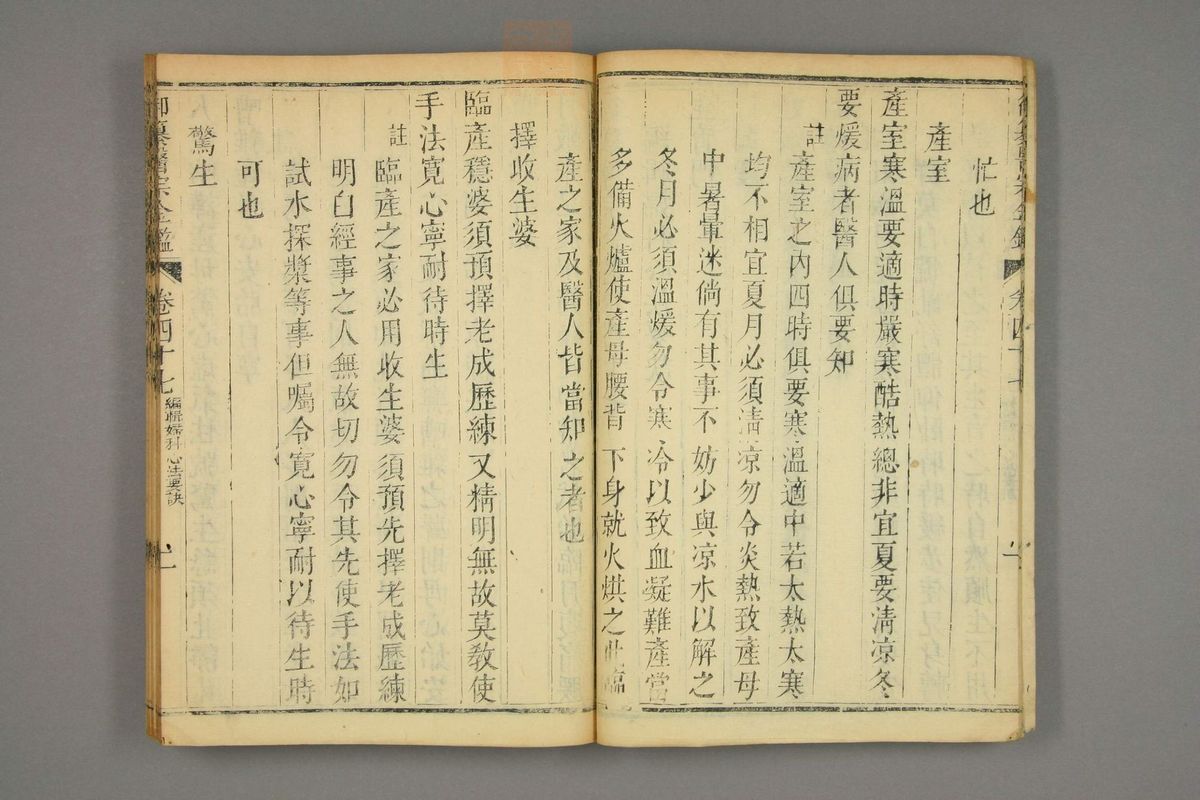 忙也
產室
產室寒溫要適時嚴寒酷熱總非宜夏要淸凉冬
要煖病者醫人俱要知
註
產室之內四時俱要寒溫適中若太熱太寒
均不相宜夏月必須淸凉勿令炎熱致產母
中暑暈迷倘有其事不妨少與凉水以解之
冬月必須溫煖勿令寒冷以致血凝難產當
多備火爐使產母腰背下身就火烘之此臨
產之家及醫人皆當知之者也
擇收生婆
臨產穩婆須預擇老成歷練又精明無故莫教使
手法寬心寧耐待時生
註
臨產之家必用收生婆須預先擇老成歷練
明白經事之人無故切勿令其先使手法如
試水探漿等事但囑令寬心寧耐以待生時
可也
驚生
御纂醫宗金鑑
卷四十七
編輯婦科心法要訣